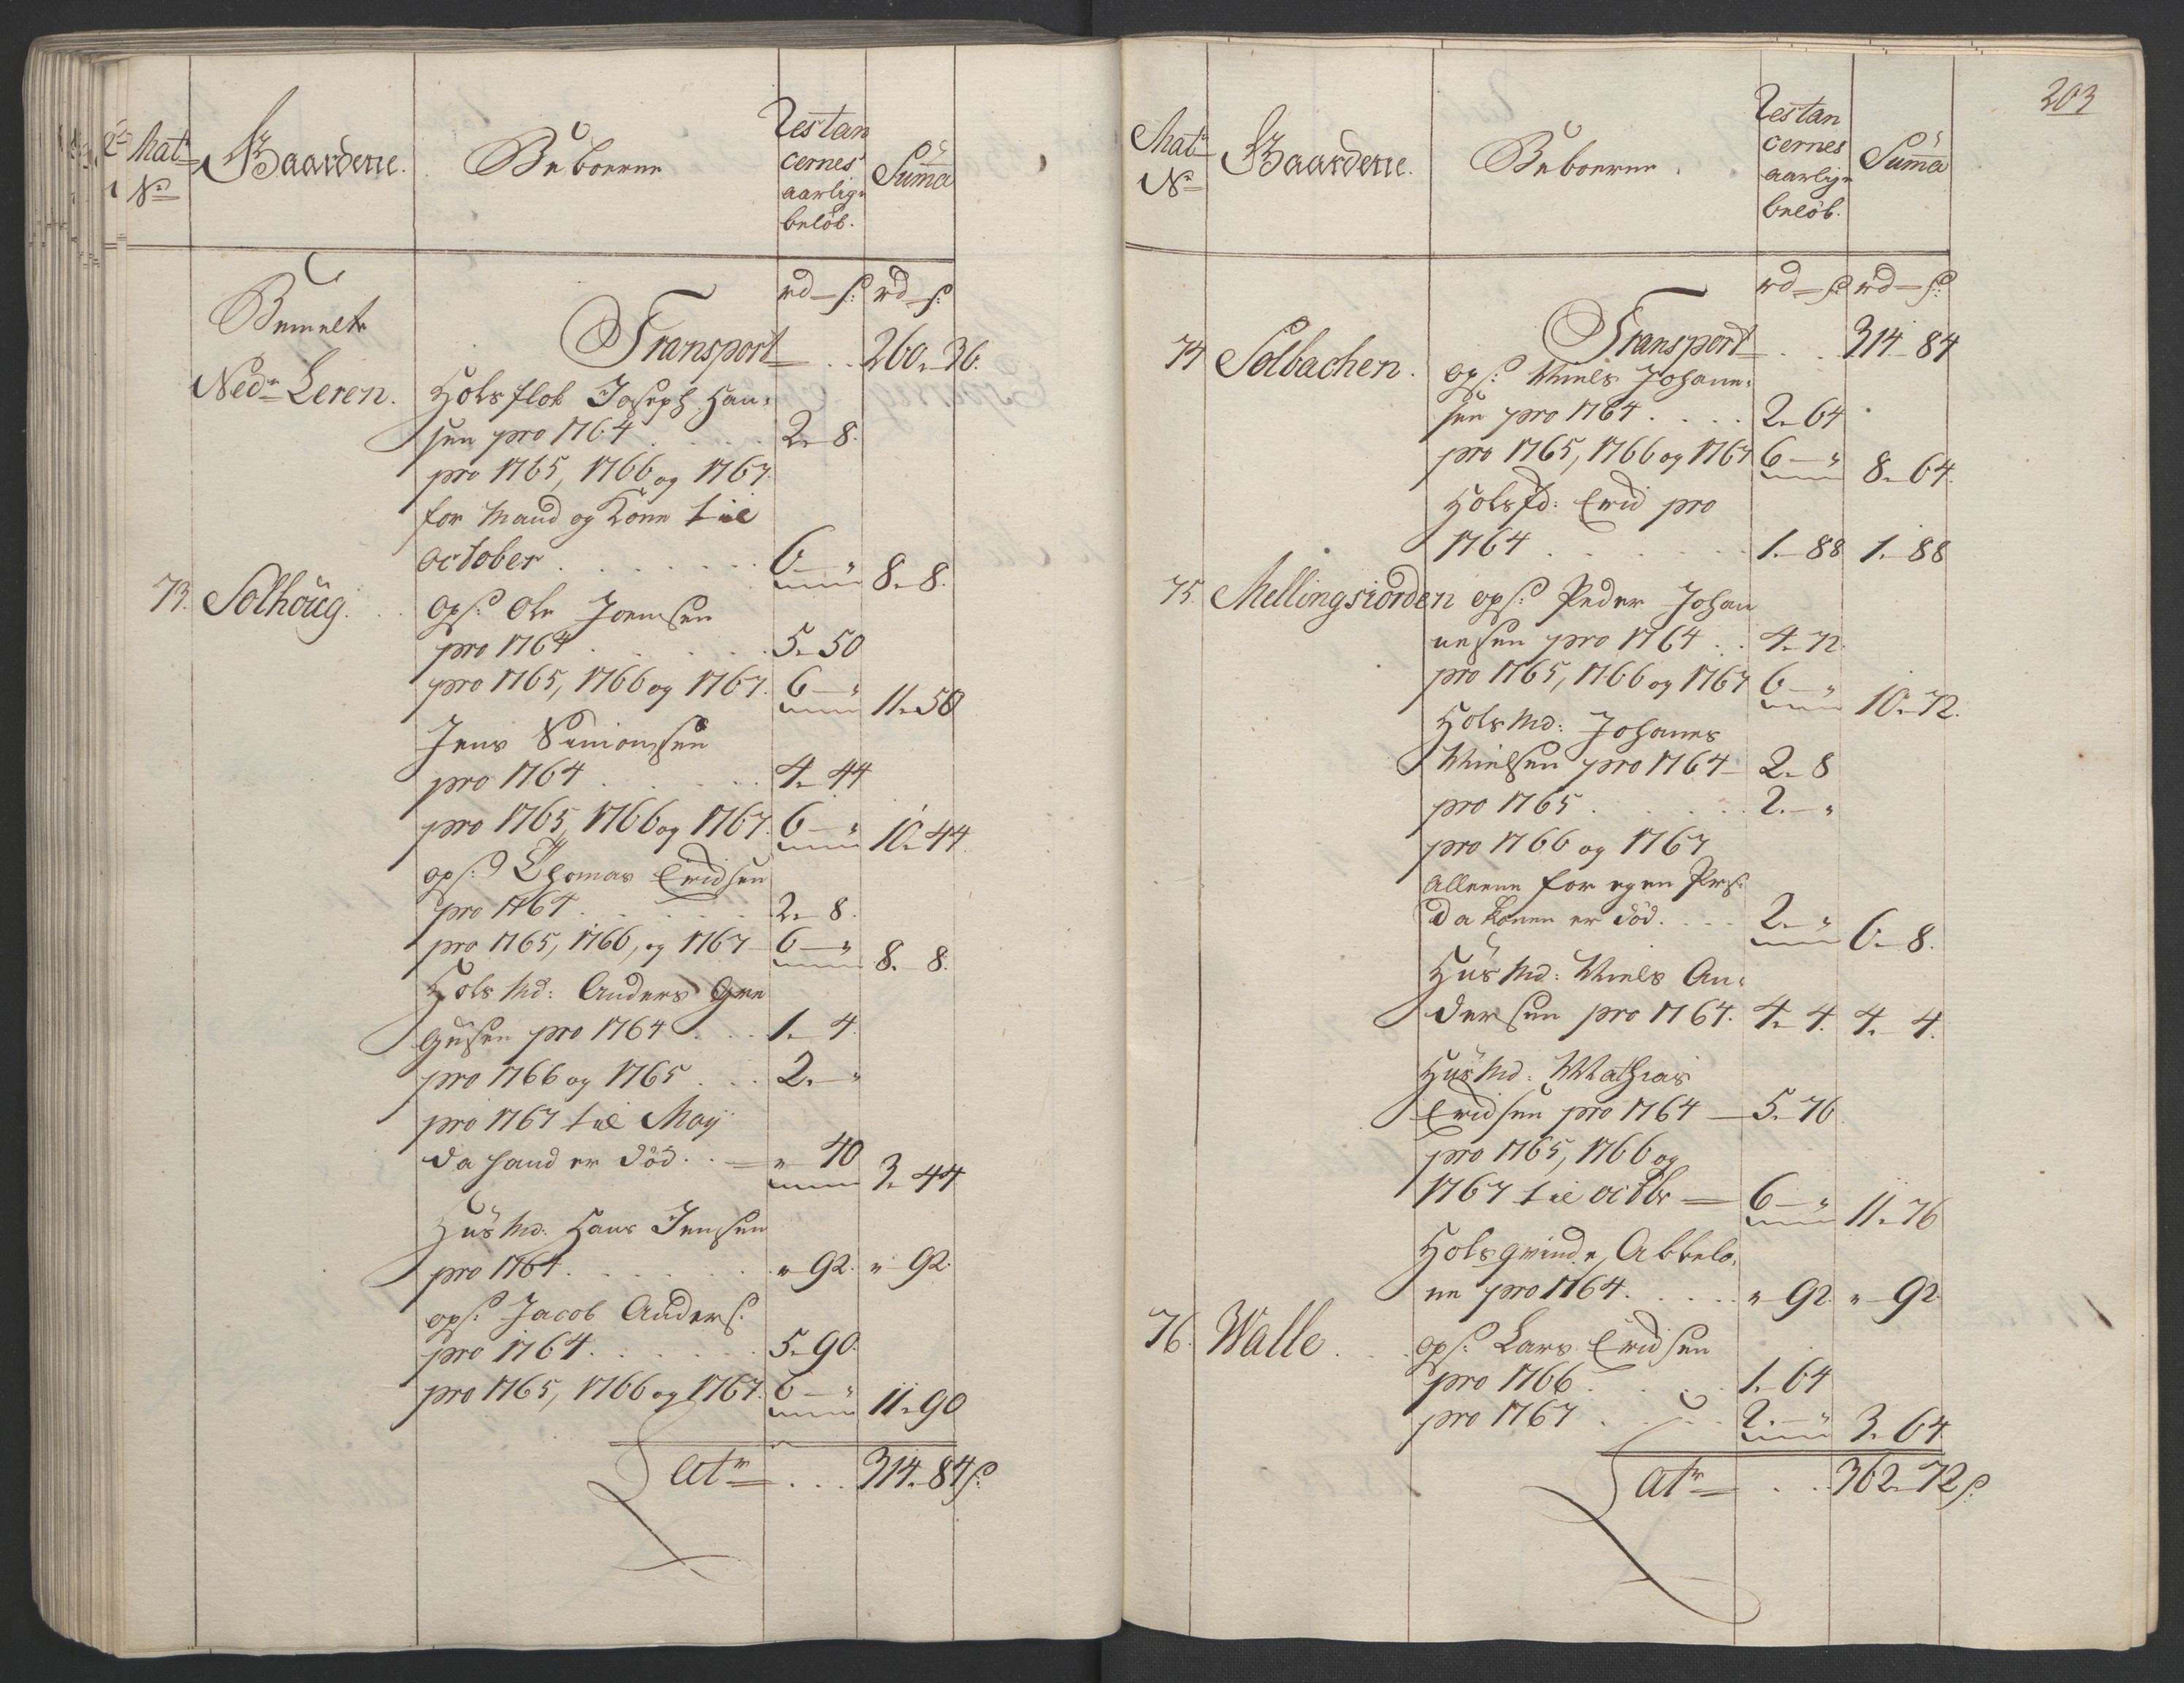 Mat:
No
Gaarderne.
Beboerne
Restan
cernes
aarlige
beløb.
Suma
rd – s: rd – s:
Bemelte
Transport . . 260 - 36.
Neder Leren.
Holsflok Joseph Han-
sen pro 1764 . . . . 2 - 8.
pro 1765, 1766 og 1767
for Mand og Kone til
october . . . . . . . 6 - " 8 - 8.
73. Solhoug. . .
Ops: Ole Joensen
pro 1764 . . . . . . 5 - 50
pro 1765, 1766 og 1767. 6 - " 11 - 50
Jens Simonsen
pro 1764 . . . . . . 4 - 44
pro 1765, 1766 og 1767. 6 - " 10 - 44
ops: Thomas Ericsen
pro 1764 . . . . . . 2 - 8.
pro 1765, 1766, og 1767 6 - " 8 - 8.
Hols Md: Anders Gre
gusen pro 1764 . . . 1 - 4.
pro 1766 og 1765 . . . 2. - "
pro 1767 til Maij
da hand er død. . . " 40 3 - 44
Huus Md. Hans Jensen
pro 1764. . . . . . . " 92. " - 92.
ops: Jacob Anders:
pro 1764. . . . . . . 5 - 90.
pro 1765, 1766 og 1767. 6 - " 11 - 90
Latr . . . 314 - 84 s:
203
Mat:
No
Gaarderne.
Beboerne.
Restan
cernes
aarlige
beløb.
Suma
rd – s: rd – s:
Transport . . 314 - 84
74 Solbachen.
Ops: Niels Johane-
sen pro 1764. . . . 2 - 64
pro 1765, 1766 og 1767 6 - " 8 - 64.
Hols fd: Erid pro
1764 . . . . . . . 1. - 88 1. - 88
75. Mellingsiorden ops: Peder Johan
nesen pro 1764 . . 4 - 72.
pro 1765, 1766 og 1767 6 - " 10. - 72.
Hols Md: Johanes
Nielsen pro 1764 - 2 - 8
pro 1765 . . . . . . 2. - "
pro 1766 og 1767
alleene for egen Pers:
da konen er død. . . . 2 - " 6 - 8.
Huus Md: Niels An-
dersen pro 1764. 4 - 4. 4. 4.
Huus Md: Mathias
Ericsen pro 1764 — 5. 76.
pro 1765, 1766 og
1767 til octbr — 6 - " 11 - 76
Holsqvinde, Abbelo-
ne pro 1764. . . . . " 92. " - 92.
76. Walle. . .
ops: Lars Ericsen
pro 1766 . . . . . 1 - 64
pro 1767 . . . . . 2. - " 3 - 64.
Latr . . . 362 - 72 s: